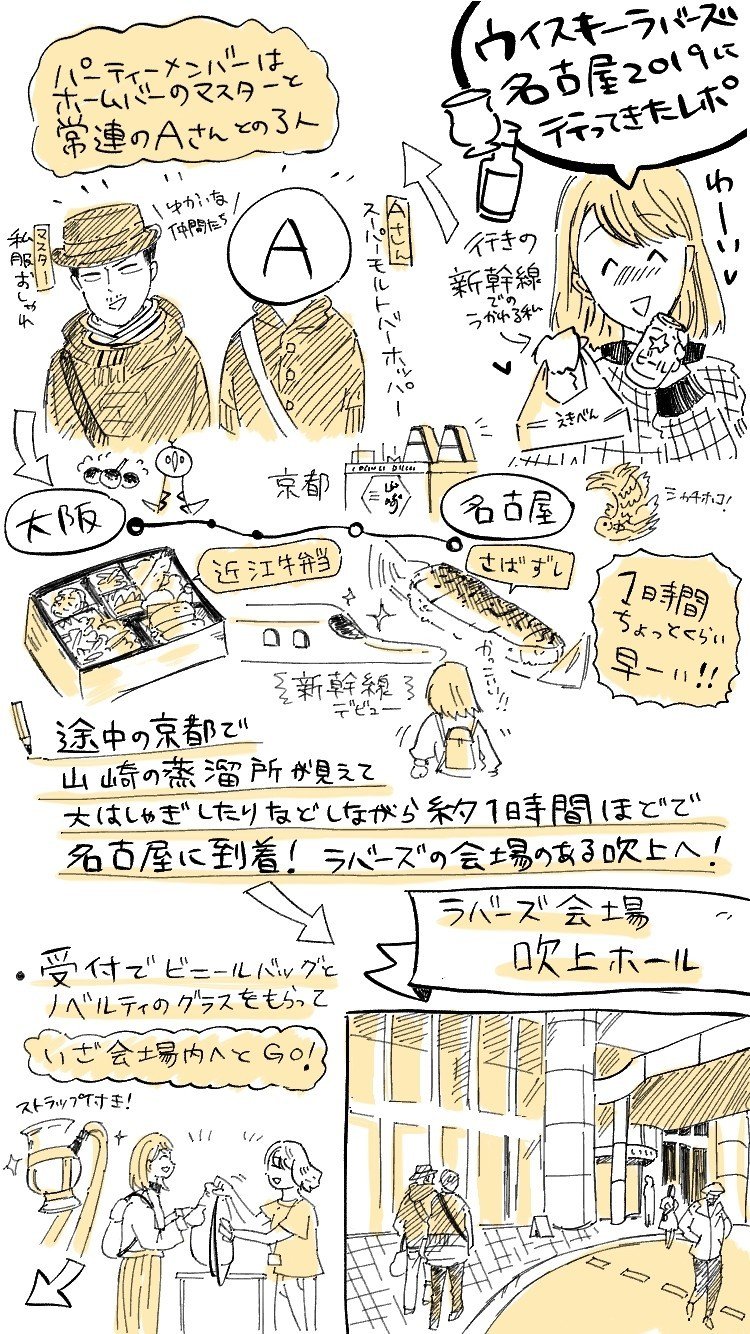 ウイスキーラバーズ
名古屋2019に
行ってきたレポ
わーいっ
行きの
新幹線
での
うかれる私
ビール
えきべん
パーティーメンバーは
ホームバーのマスターと
常連のAさんとの3人
ゆかいな
仲間たち
マスター
私服おしゃれ
A
Aさん
スーパーモルトバーホッパー
大阪
京都
山崎
名古屋
シャチホコ!
近江牛弁当
さばずし
1時間
ちょっとくらい
早ーい!!
新幹線
デビュー
かっこいい!!
途中の京都で
山崎の蒸溜所が見えて
大はしゃぎしたりなどしながら約1時間ほどで
名古屋に到着! ラバーズの会場のある吹上へ!
ラバーズ会場
吹上ホール
・受付でビニールバッグと
ノベルティのグラスをもらって
いざ会場内へとGO!
ストラップ付き!